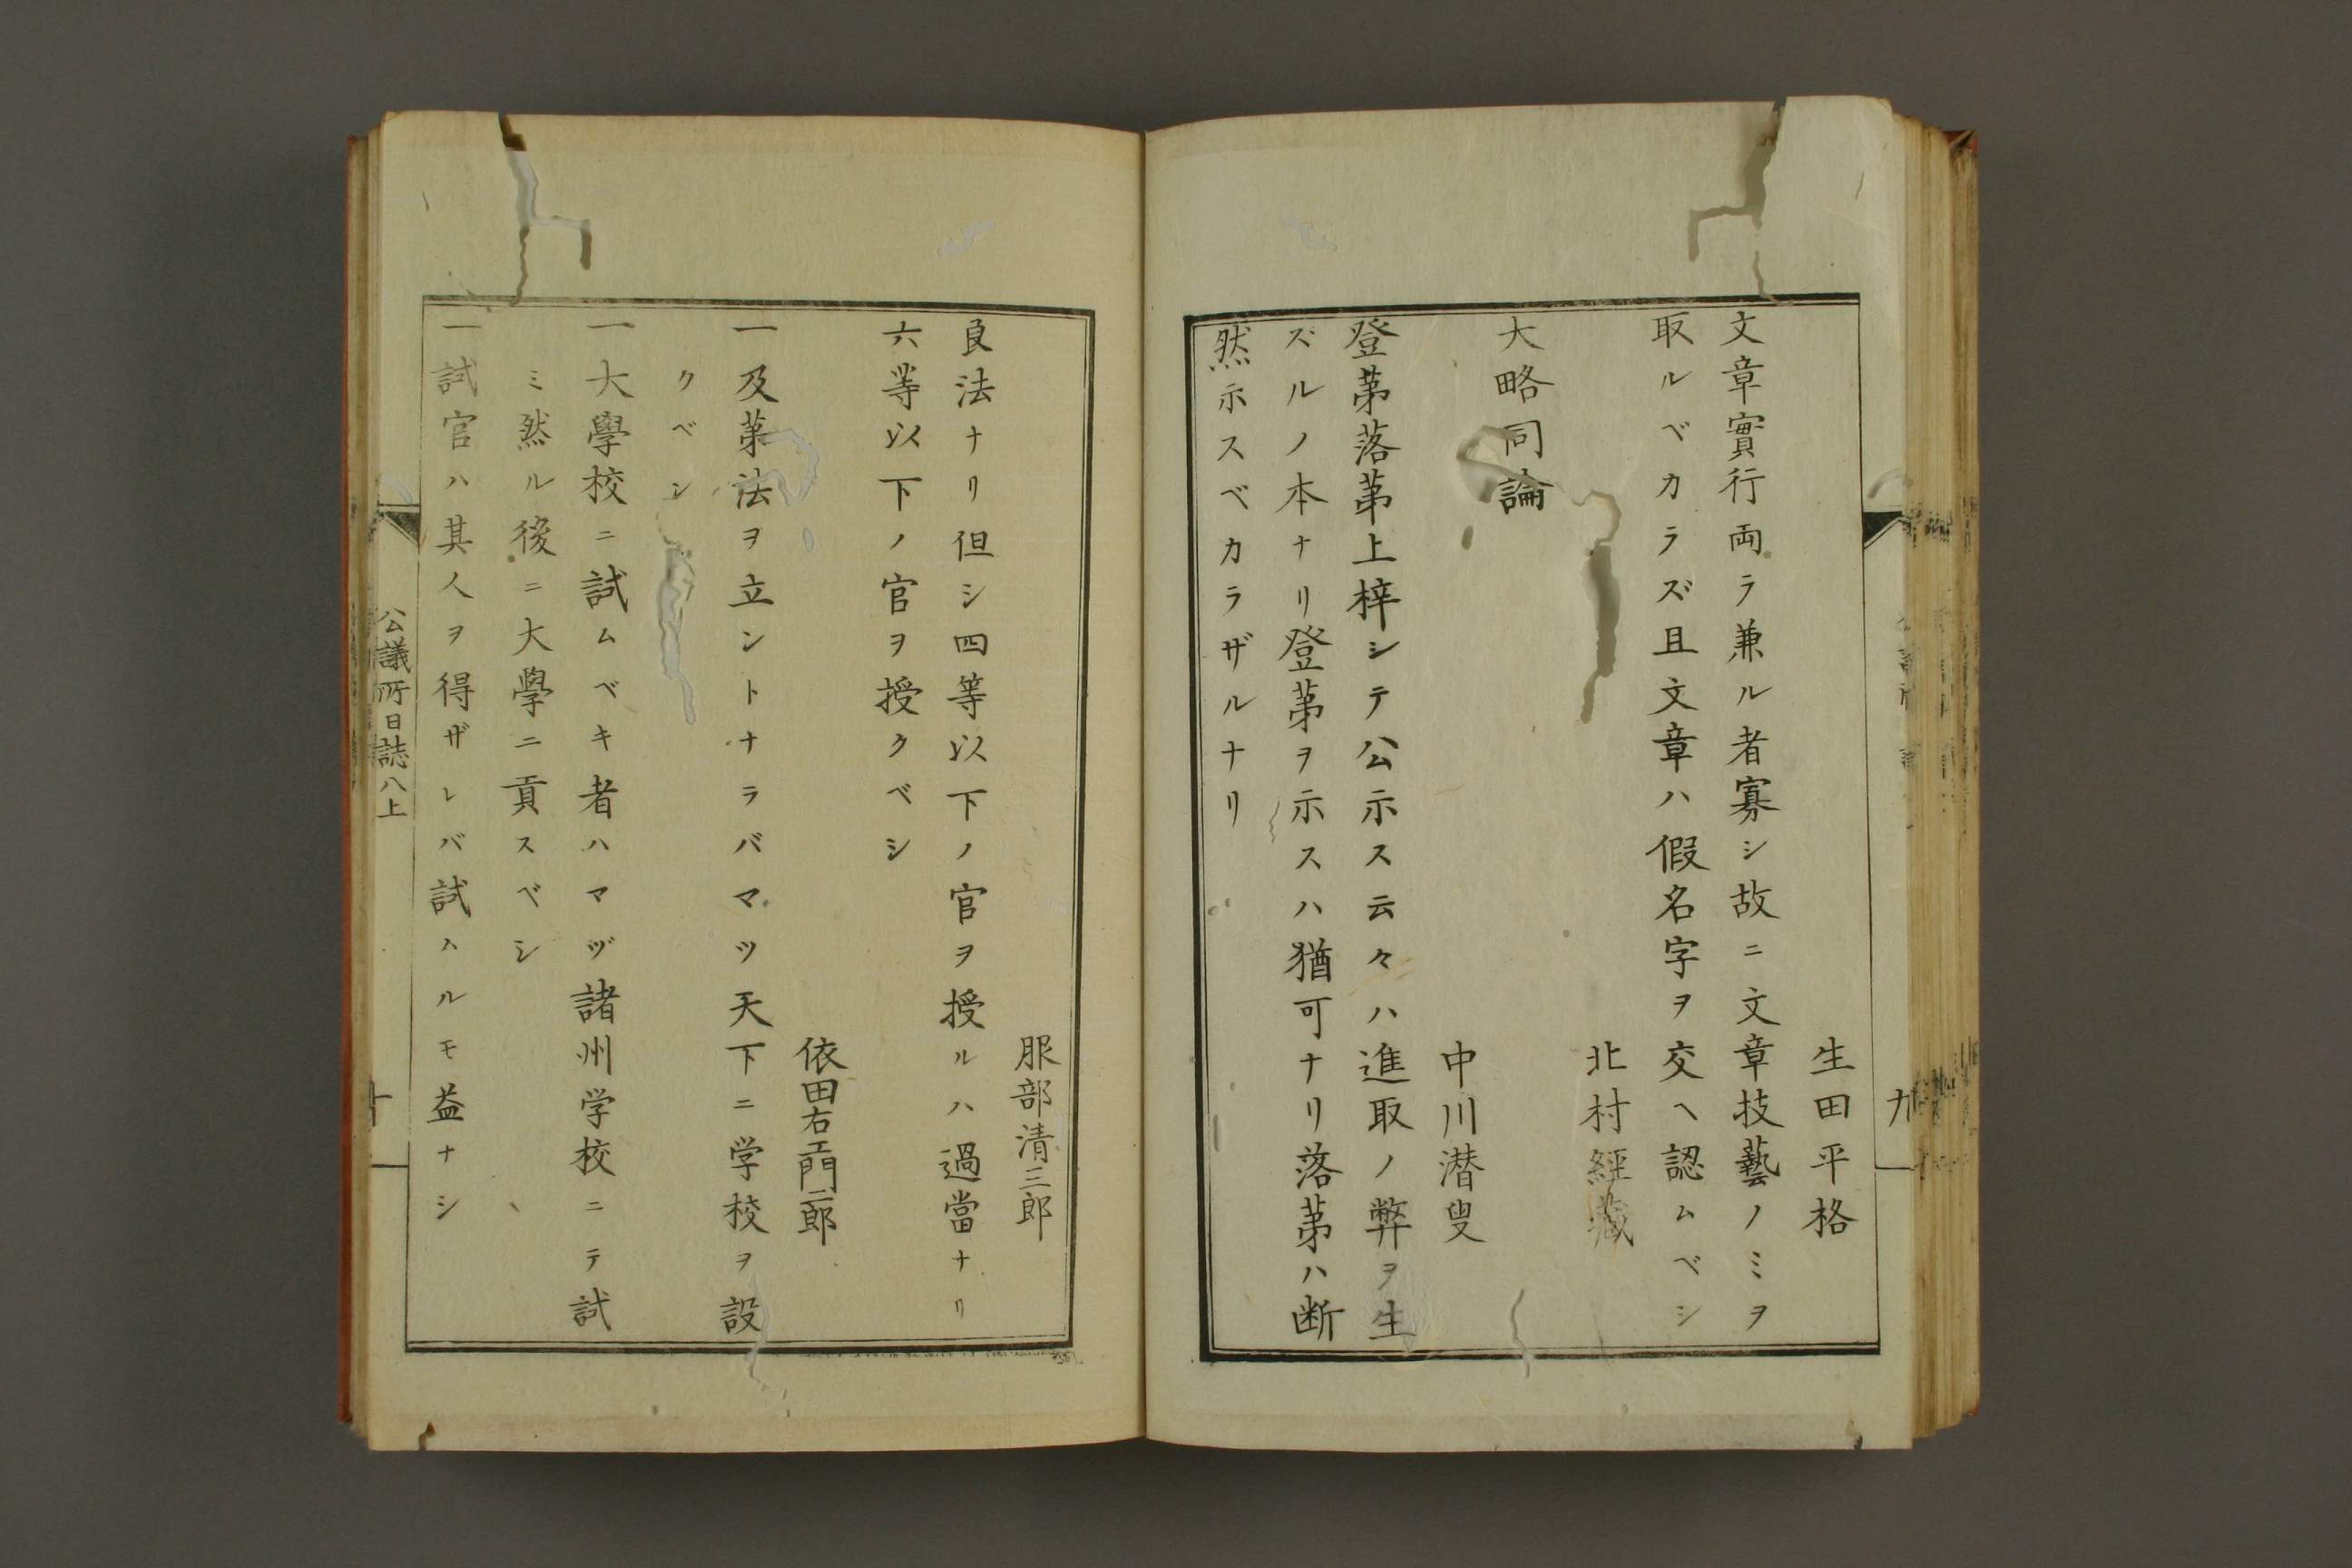 生田平格
文章實行両ラ兼ル者寡シ故ニ文章技藝ノミヲ
取ルベカラズ且文章ハ假名字ヲ交ヘ認ムベシ
北村經藏
大略同論
中川潜叟
登苐落苐上梓シテ公示ス云々ハ進取ノ弊ヲ生
ズルノ本ナリ登苐ヲ示スハ猶可ナリ落苐ハ断
然示スベカラザルナリ
九
服部清三郎
良法ナリ但シ四等以下ノ官ヲ授ルハ過當ナリ
六等以下ノ官ヲ授クベシ
依田右エ門二郎
一及苐法ヲ立ントナラバマツ天下ニ学校ヲ設
クベシ
一大學校ニ試ムベキ者ハマヅ諸州学校ニテ試
ミ然ル後ニ大學ニ貢スベシ
一試官ハ其人ヲ得ザレバ試ハルモ益ナシ
公議所日誌八上
十